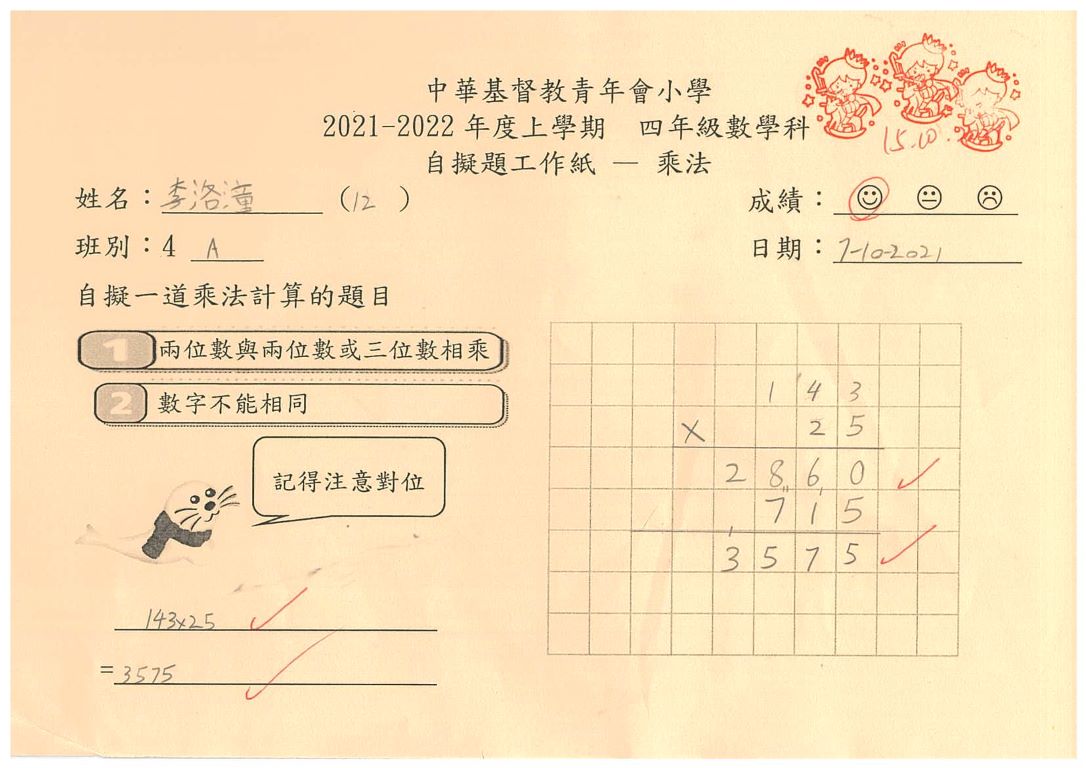 中華基督教青年會小學
2021-2022 年度上學期 四年級數學科
自擬題工作紙 — 乘法
15.10
姓名：李洛潼 (12)
成績：
班別：4 A
日期：7-10-2021
自擬一道乘法計算的題目
1 兩位數與兩位數或三位數相乘
2 數字不能相同
記得注意對位
1 4 3
× 2 5
2 8 6 0
7 1 5
3 5 7 5
143×25
= 3575